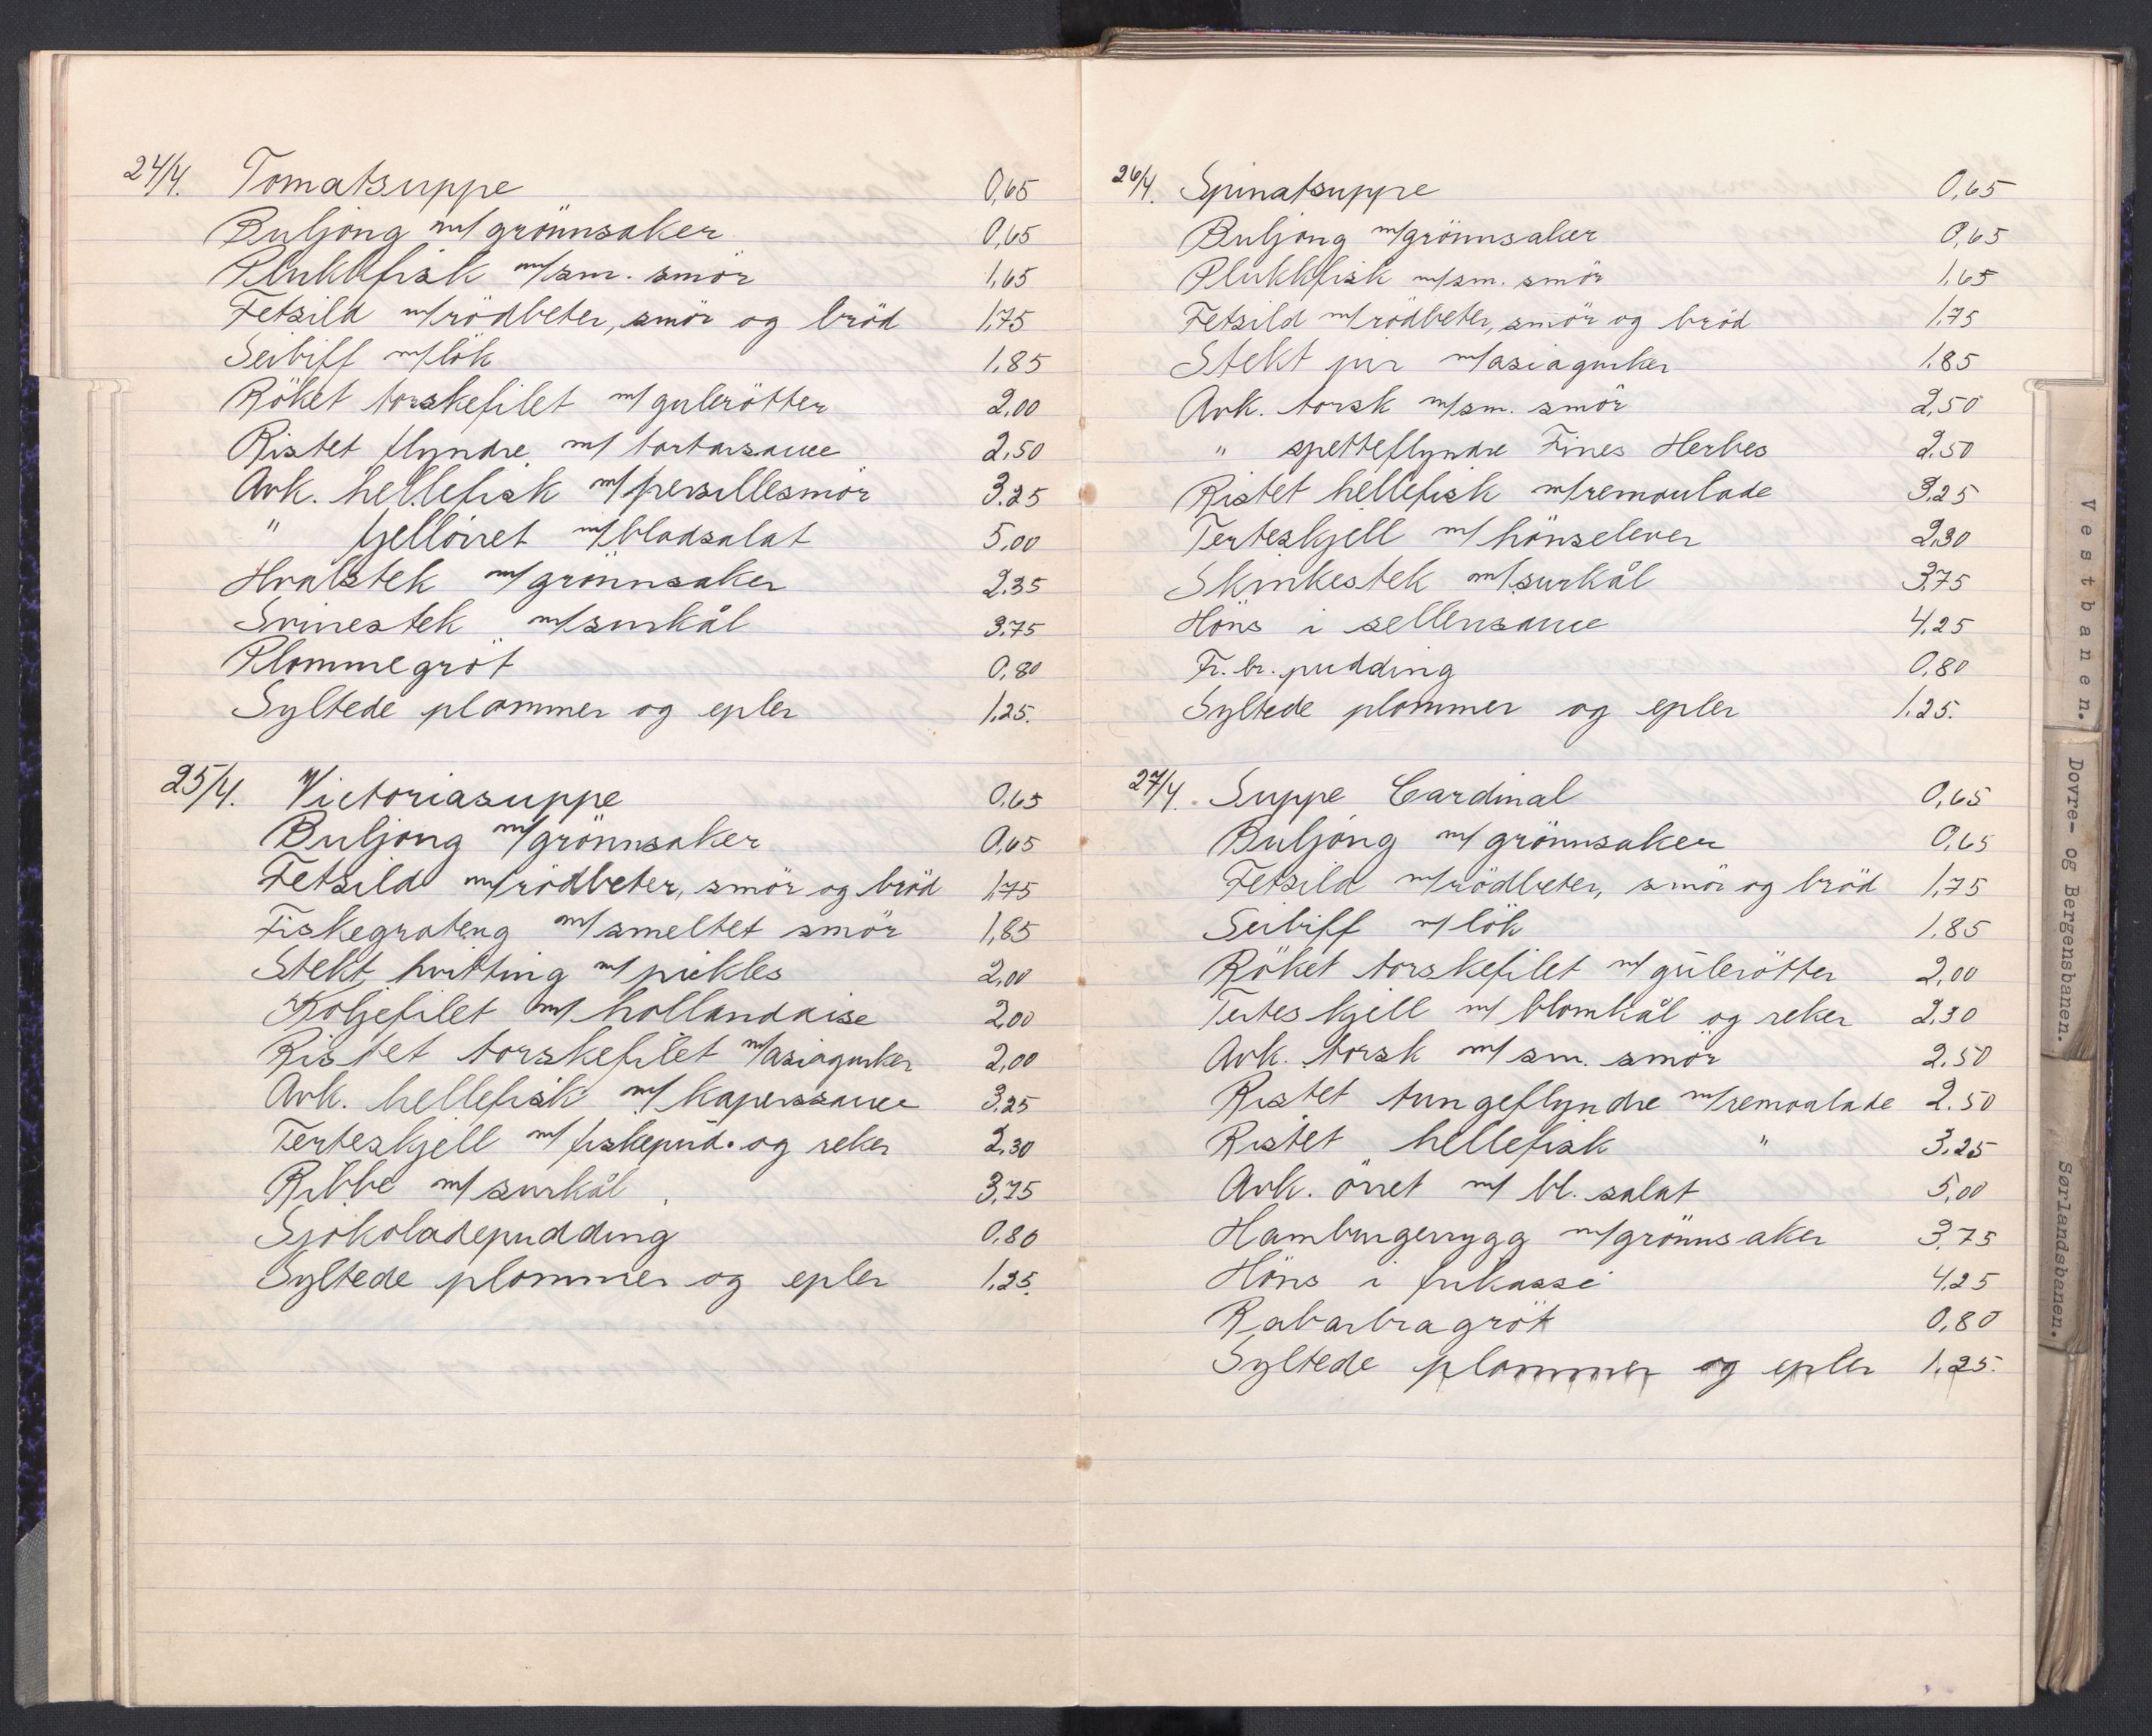 24/4. Tomatsuppe 0,65
Buljong m/grönnsaker 0,65
Plukkfisk m/sm. smör 1,65
Fetsild m/rödbeter, smör og bröd 1,75
Seibiff m/lök 1,85
Röket torskefilet m/gulerötter 2,00
Ristet flyndre m/tartarsauce 2,50
Avk. hellefisk m/persillesmör 3.25
" fjellörret m/bladsalat 5,00
Hvalstek m/grönnsaker 2.35
Svinestek m/surkål 3.75
Plommegröt 0,80
Syltede plommer og epler 1,25.
25/4. Victoriasuppe 0,65
Buljong m/grönnsaker 0,65
Fetsild m/rödbeter, smör og bröd 1,75
Fiskegrateng m/smeltet smör 1,85
Stekt hvitting m/pickles 2,00
Koljefilet m/hollandaise 2,00
Ristet torskefilet m/asiagurker 2,00
Avk. hellefisk m/kaperssauce 3.25
Terteskjell m/fiskepud. og reker 2,30
Ribbe m/surkål 3,75
Sjokoladepudding 0,80
Syltede plommer og epler 1,25.
26/4. Spinatsuppe 0,65
Buljong m/grönnsaker 0,65
Plukkfisk m/sm. smör 1,65
Fetsild m/rödbeter, smör og bröd 1.75
Stekt pir m/asiagurker 1.85
Avk. torsk m/sm. smör 2,50
" spetteflyndre Fines Herbes 2.50
Ristet hellefisk m/remoulade 3,25
Terteskjell m/hönselever 2,30
Skinkestek m/surkål 3.75
Höns i sellerisauce 4,25
Fr. br. pudding 0,80
Syltede plommer og epler 1.25.
27/4. Suppe Cardinal 0,65
Buljong m/grönnsaker 0,65
Fetsild m/rödbeter, smör og bröd 1,75
Seibiff m/lök 1.85
Röket torskefilet m/gulerötter 2,00
Terteskjell m/blomkål og reker 2.30
Avk. torsk m/sm. smör 2.50
Ristet tungeflyndre m/remoulade 2.50
Ristet hellefisk " 3.25
Avk. örret m/bl. salat 5,00
Hamburgerrygg m/grönnsaker 3.75
Höns i frikassé 4,25
Rabarbragröt 0,80
Syltede plommer og epler 1,25.
Vestbanen.
Dovre- og Bergensbanen.
Sørlandsbanen.